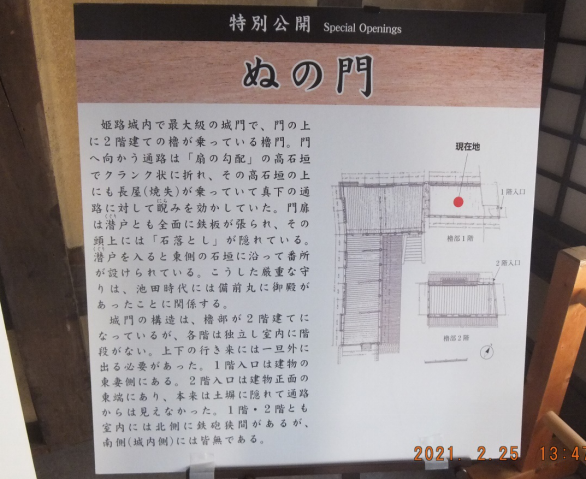 特別公開 Special Openings
ぬの門
姫路城内で最大級の城門で、門の上
に2階建ての櫓が乗っている櫓門。門
へ向かう通路は「扇の勾配」の高石垣
でクランク状に折れ、その高石垣の上
にも長屋(焼失)が乗っていて真下の通
路に対して睨みを効かしていた。門扉
は潜戸とも全面に鉄板が張られ、その
頭上には「石落とし」が隠れている。
潜戸を入ると東側の石垣に沿って番所
が設けられている。こうした厳重な守
りは、池田時代には備前丸に御殿が
あったことに関係する。
城門の構造は、櫓部が2階建てに
なっているが、各階は独立し室内に階
段がない。上下の行き来には一旦外に
出る必要があった。1階入口は建物の
東妻側にある。2階入口は建物正面の
東端にあり、本来は土塀に隠れて通路
からは見えなかった。1階・2階とも
室内には北側に鉄砲狭間があるが、
南側(城内側)には皆無である。
現在地
1階入口
櫓部1階
2階入口
櫓部2階
2021. 2. 25 13:47